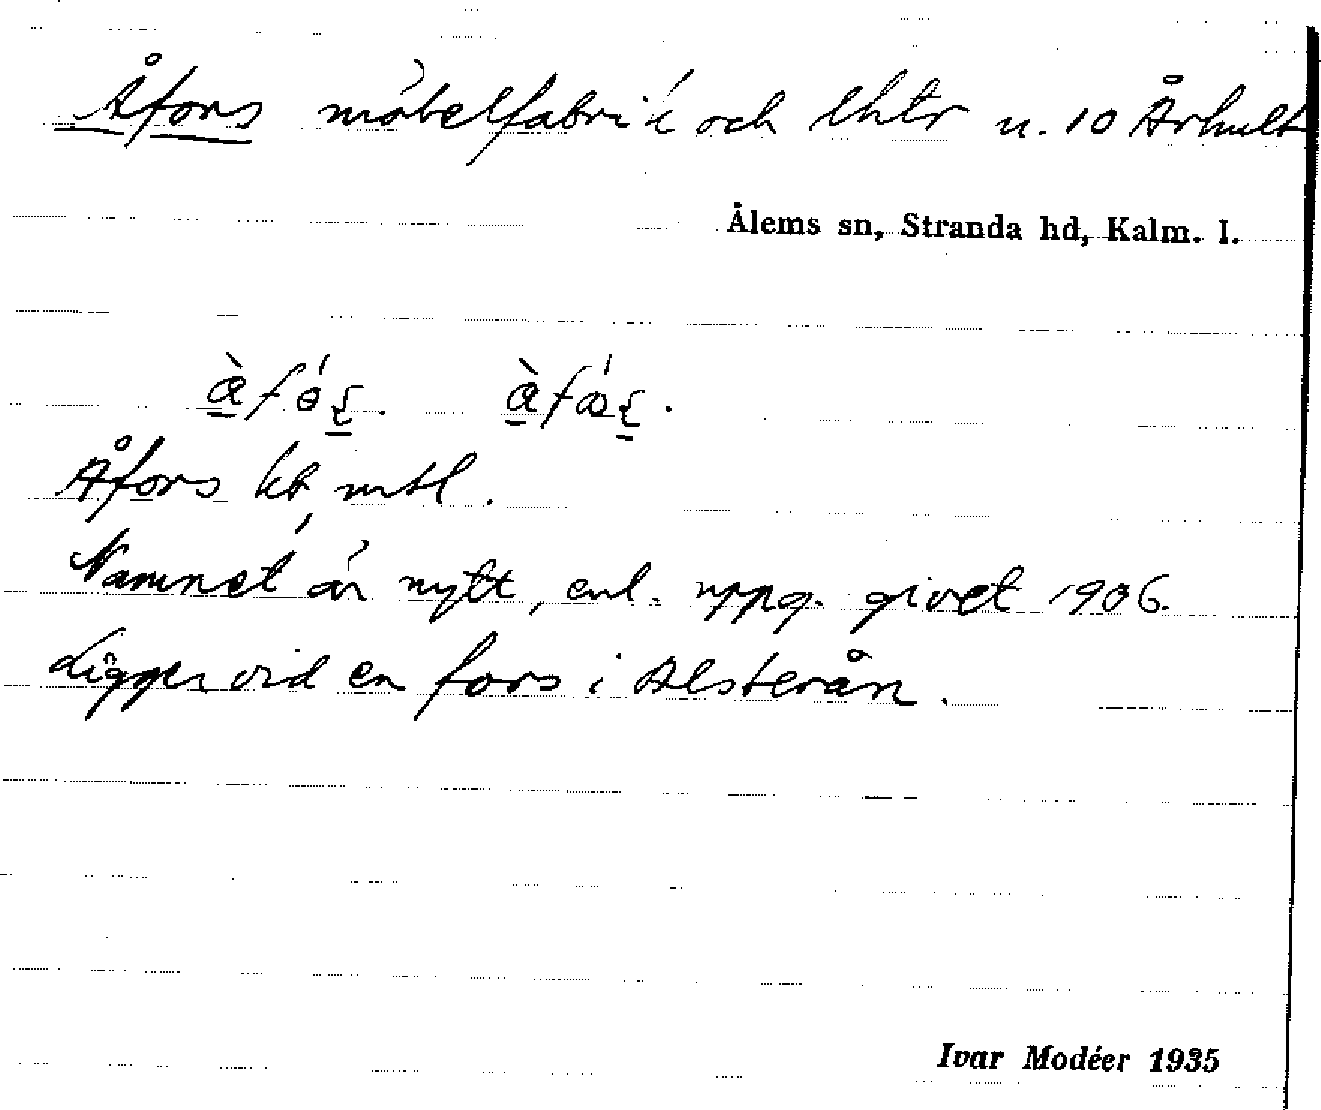 Åfors möbelfabrik och lhtr u. 10 Århult
Ålems sn, Stranda hd, Kalm. l.
Åfors kb, mtl.
Namnet är nytt, enl. uppg. givet 1906.
Ligger vid en fors i Alsterån.
Ivar Modéer 1935